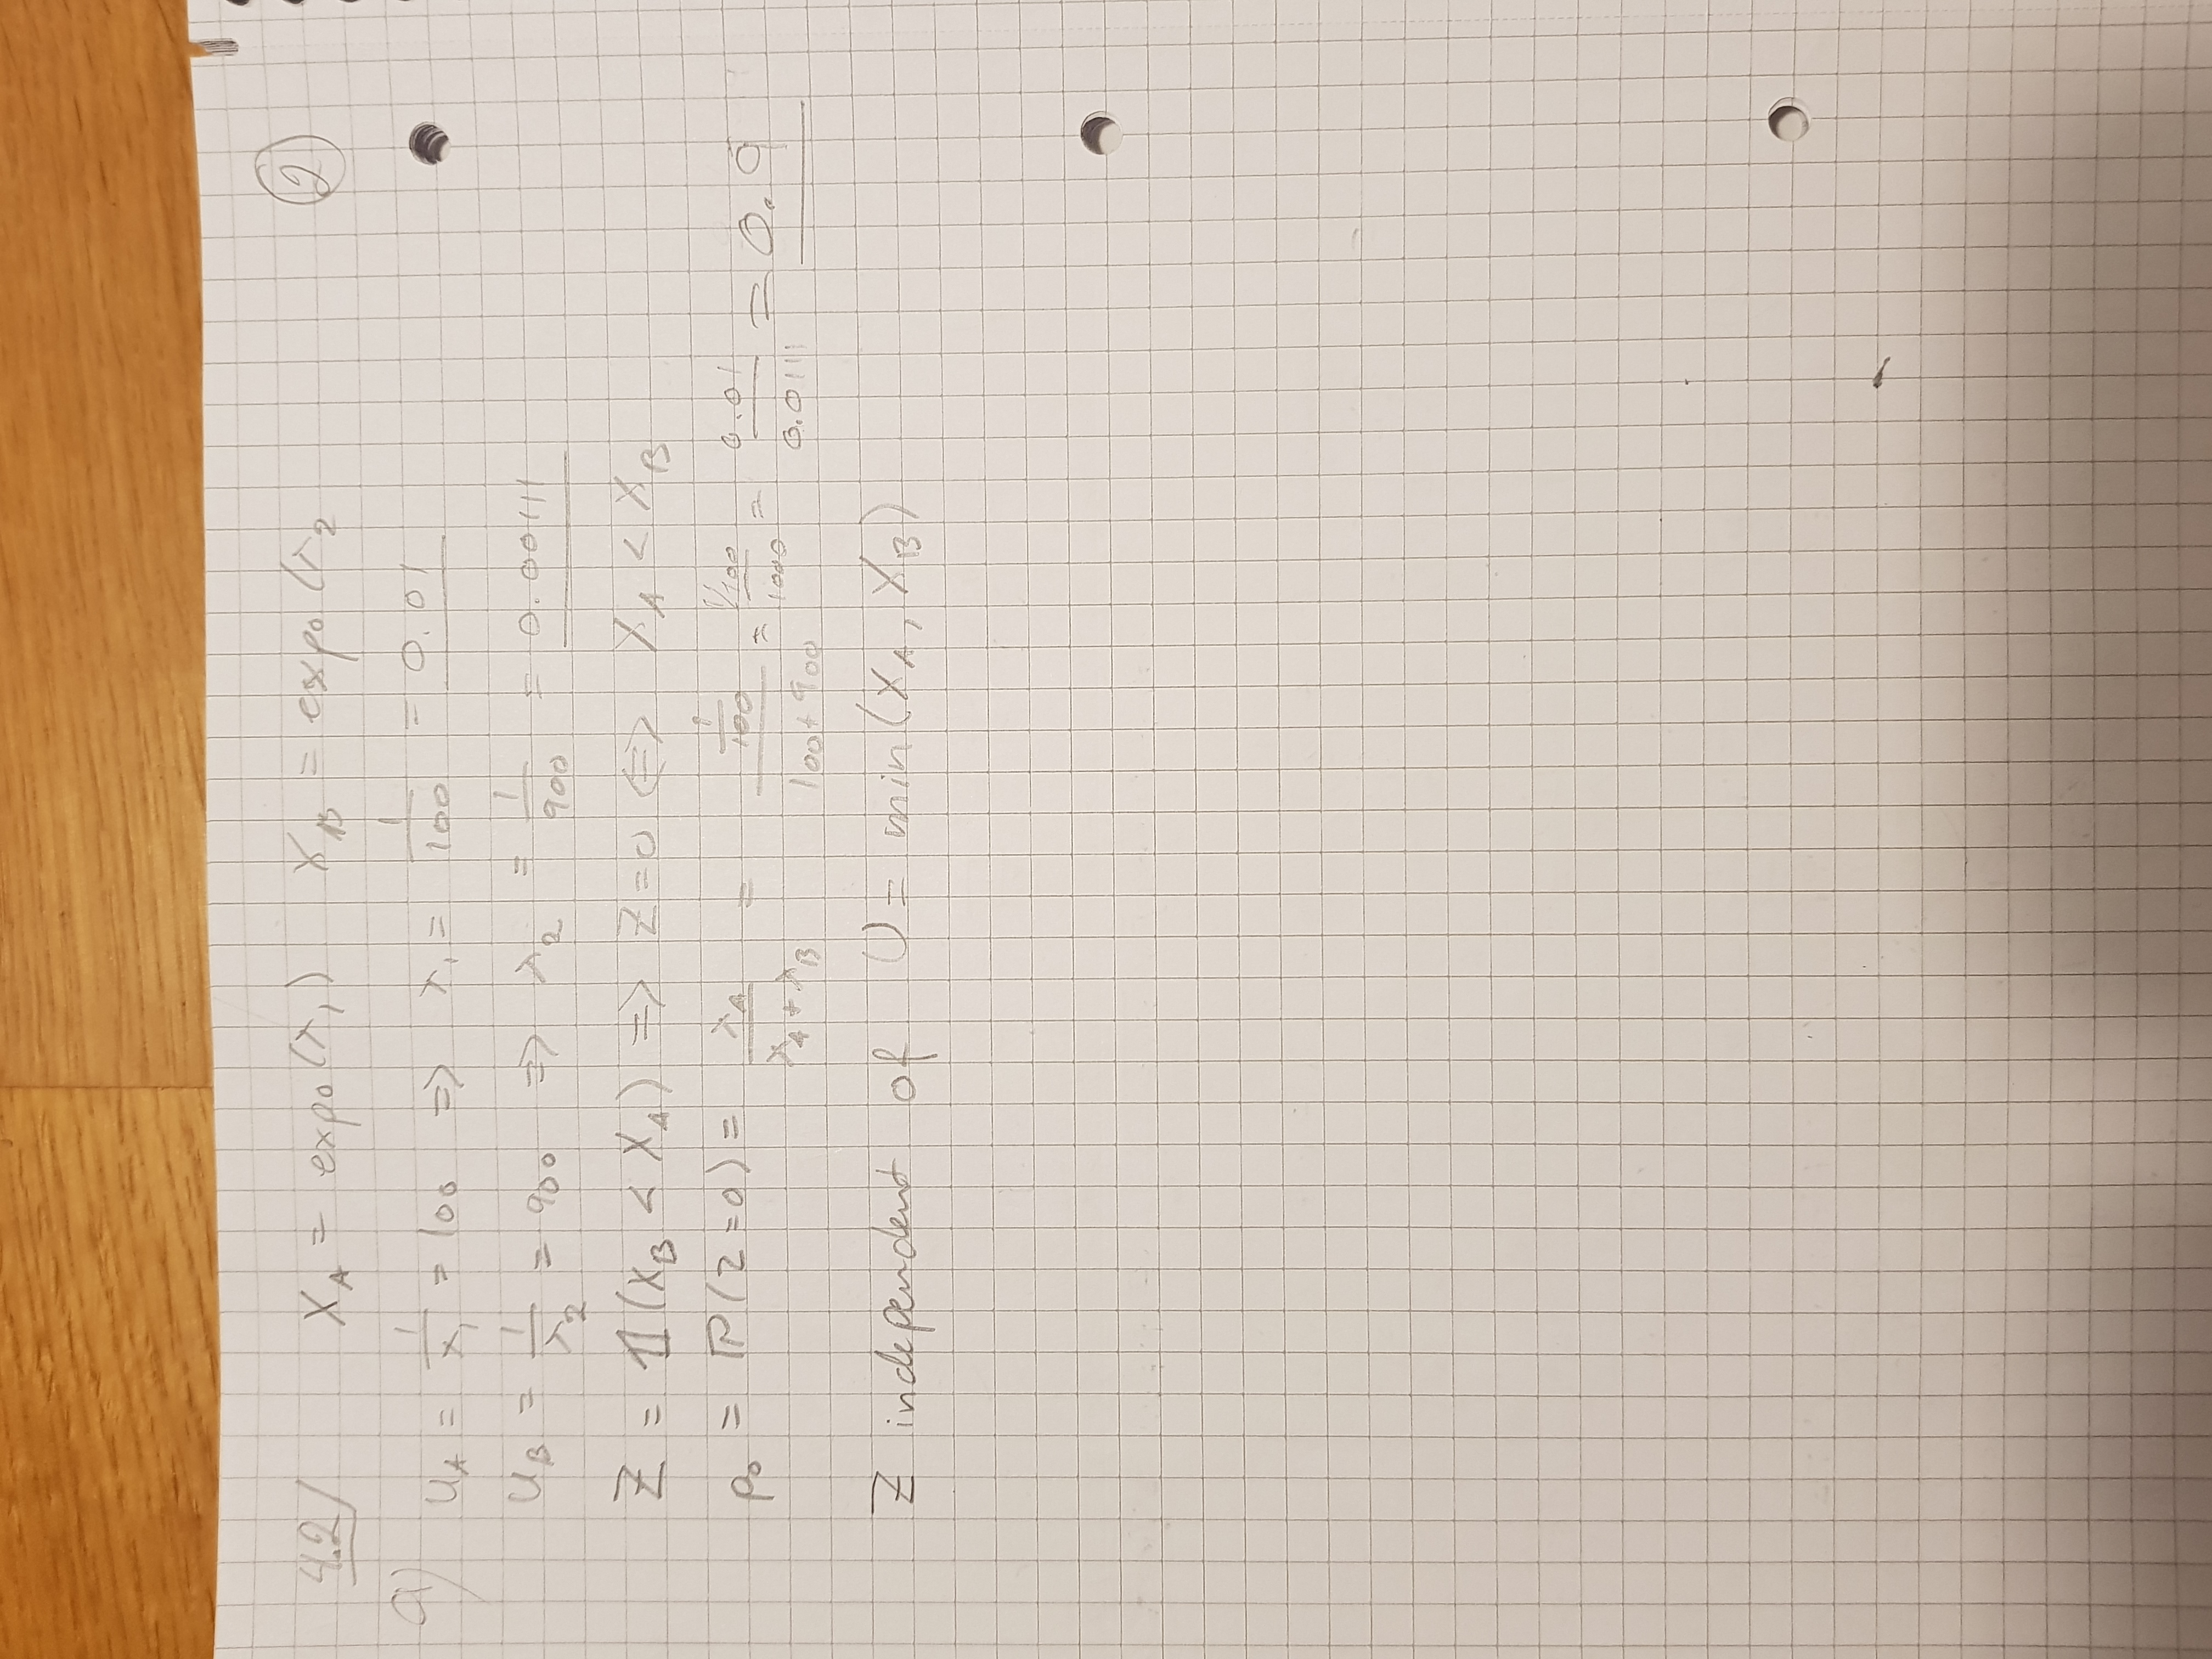 4.2/ X_A = expo(λ_1) X_B = expo(λ_2 ②
a) u_A = 1/λ_1 = 100 => λ_1 = 1/100 = 0.01
u_B = 1/λ_2 = 900 => λ_2 = 1/900 = 0.00111
Z = 𝟙(X_B < X_A) => Z=0 <=> X_A < X_B
p_0 = ℙ(Z=0) = λ_A/(λ_A+λ_B) = (1/100)/(100+900) = (1/100)/1000 = 0.01/0.0111 = 0.9
Z independent of U = min(X_A, X_B)